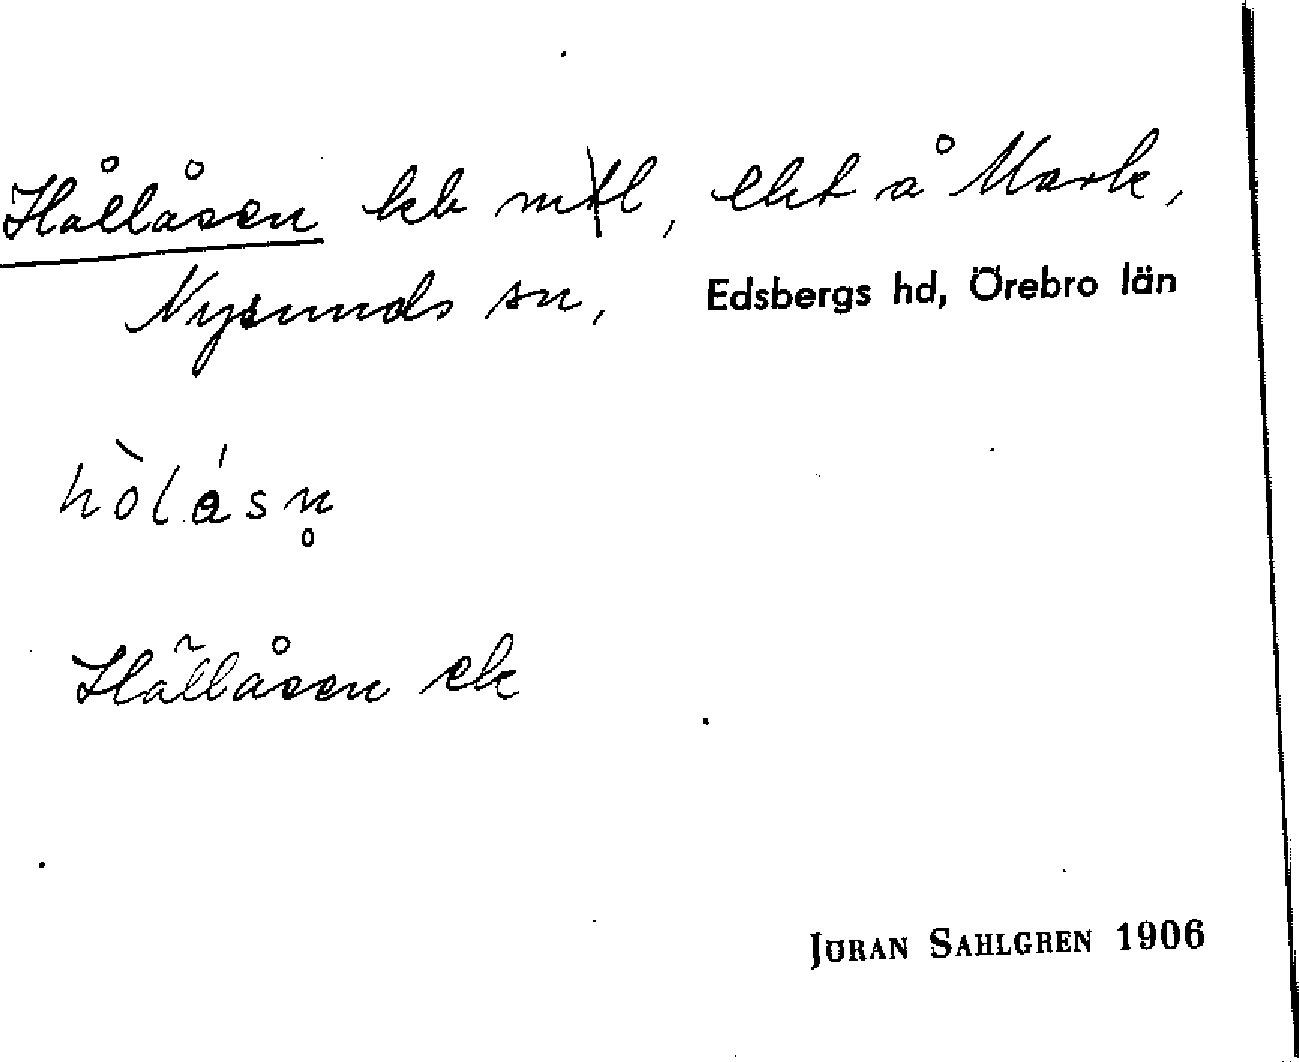 Hållåsen kb mtl, ekt å Mark,
Nysunds sn, Edsbergs hd, Örebro län
hòlásn̥
Hållåsen ek
JÖRAN SAHLGREN 1906